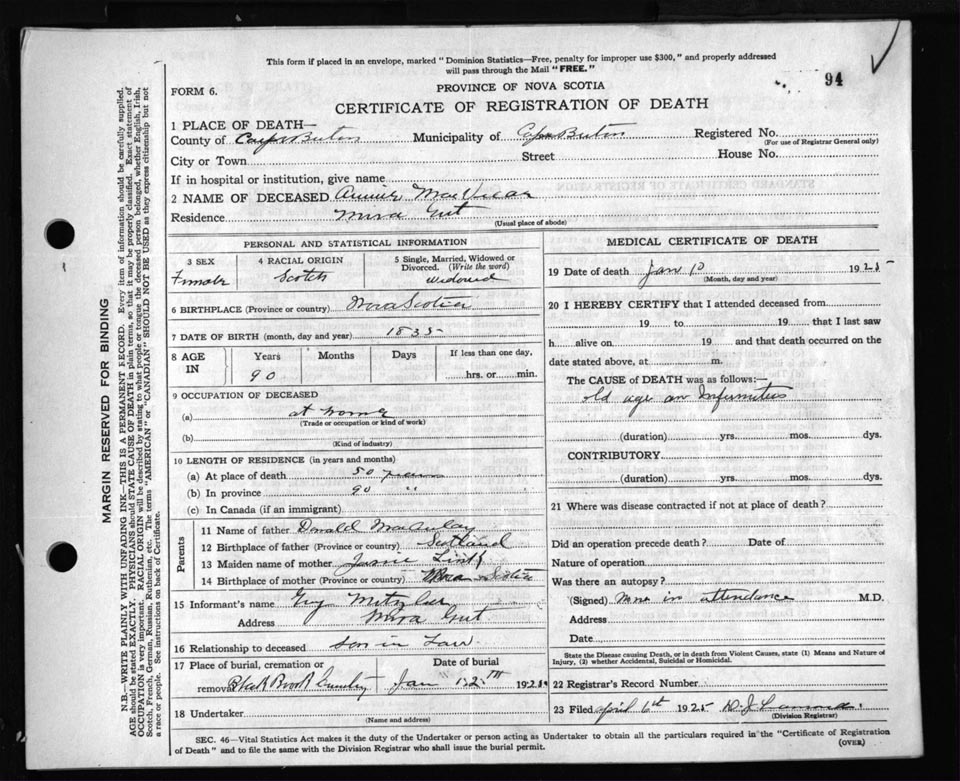 This form if placed in an envelope, marked "Dominion Statistics—Free, penalty for improper use $300," and properly addressed
will pass through the Mail "FREE."
94
FORM 6.
PROVINCE OF NOVA SCOTIA
CERTIFICATE OF REGISTRATION OF DEATH
1 PLACE OF DEATH—
County of Cape Breton Municipality of Cape Breton Registered No.
(For use of Registrar General only)
City or Town Street House No.
If in hospital or institution, give name
2 NAME OF DECEASED Annie MacVicar
Residence Mira Gut
(Usual place of abode)
PERSONAL AND STATISTICAL INFORMATION
3 SEX 4 RACIAL ORIGIN 5 Single, Married, Widowed or
Divorced. (Write the word)
Female Scotch widowed
6 BIRTHPLACE (Province or country) Nova Scotia
7 DATE OF BIRTH (month, day and year) 1835
8 AGE IN Years Months Days If less than one day,
90 hrs. or min.
9 OCCUPATION OF DECEASED
(a) at home
(Trade or occupation or kind of work)
(b)
(Kind of industry)
10 LENGTH OF RESIDENCE (in years and months)
(a) At place of death 50 years
(b) In province 90 "
(c) In Canada (if an immigrant)
Parents
11 Name of father Donald MacAulay
12 Birthplace of father (Province or country) Scotland
13 Maiden name of mother
14 Birthplace of mother (Province or country) Nova Scotia
15 Informant's name Metzler
Address Mira Gut
16 Relationship to deceased son in Law
17 Place of burial, cremation or Date of burial
removal Black Brook Cemetery Jan 12th 1925
18 Undertaker
(Name and address)
MEDICAL CERTIFICATE OF DEATH
19 Date of death Jan 10 1925
(Month, day and year)
20 I HEREBY CERTIFY that I attended deceased from
19 to 19 that I last saw
h alive on 19 and that death occurred on the
date stated above, at m.
The CAUSE of DEATH was as follows:—
old age an Infirmities
(duration) yrs. mos. dys.
CONTRIBUTORY
(duration) yrs. mos. dys.
21 Where was disease contracted if not at place of death?
Did an operation precede death? Date of
Nature of operation
Was there an autopsy?
(Signed) None in attendance M.D.
Address
Date
State the Disease causing Death, or in death from Violent Causes, state (1) Means and Nature of
Injury, (2) whether Accidental, Suicidal or Homicidal.
22 Registrar's Record Number
23 Filed April 6th 1925
(Division Registrar)
SEC. 46—Vital Statistics Act makes it the duty of the Undertaker or person acting as Undertaker to obtain all the particulars required in the "Certificate of Registration
of Death" and to file the same with the Division Registrar who shall issue the burial permit.
(OVER)
MARGIN RESERVED FOR BINDING
N.B.—WRITE PLAINLY WITH UNFADING INK—THIS IS A PERMANENT RECORD. Every item of information should be carefully supplied.
AGE should be stated EXACTLY. PHYSICIANS should STATE CAUSE OF DEATH in plain terms, so that it may be properly classified. Exact statement of
OCCUPATION is very important. RACIAL ORIGIN will be described by stating to what people or tongue the deceased person belonged, whether English, Irish,
Scotch, French, German, Russian, Ruthenian, etc. The terms "AMERICAN" or "CANADIAN" SHOULD NOT BE USED as they express citizenship but not
a race or people. See instructions on back of Certificate.